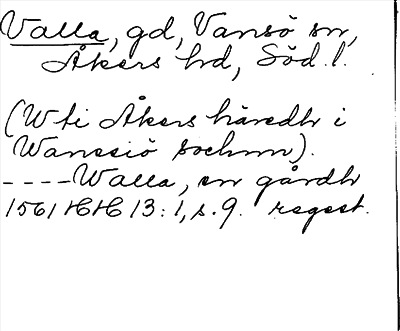 Valla, gd, Vansö sn,
Åkers hd, Söd. l.
(W ti Åkers häredh i
Wanesiö sochnn).
----Walla, en gårdh
1561 HH 13:1, s. 9. regest.